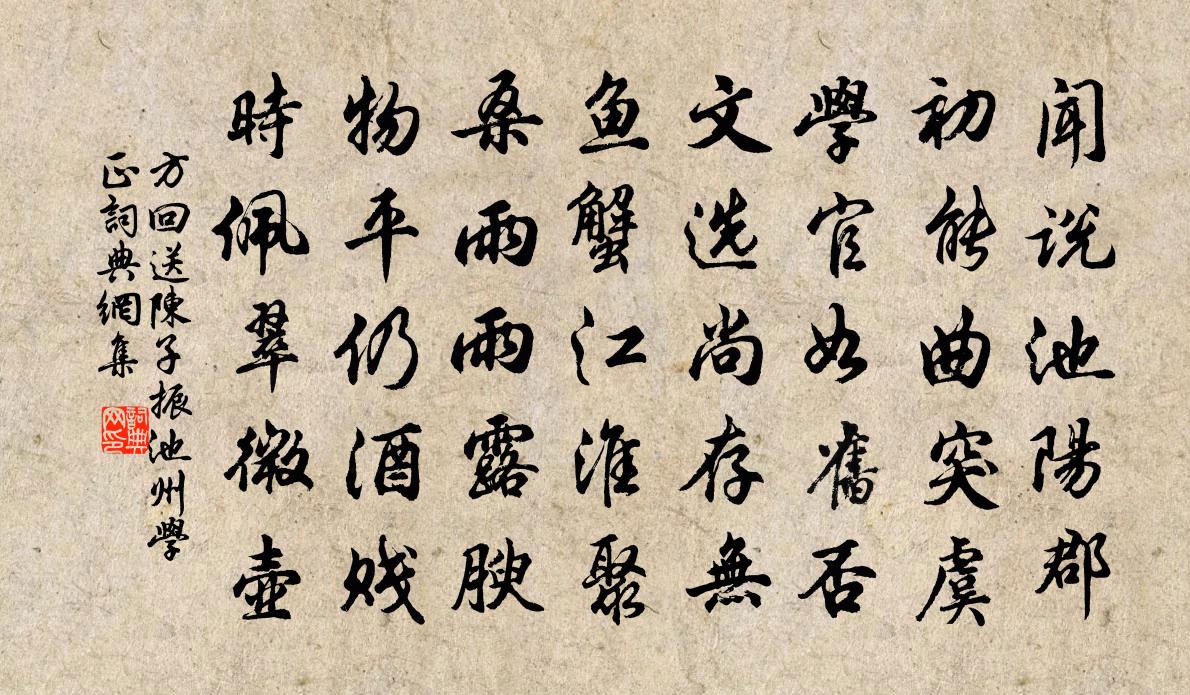 聞说池陽郡
初能曲突虞
學官如舊否
文选尚存無
鱼蟹江淮聚
桑雨雨露腴
物平仍酒贱
時佩翠微壺
方回送陳子振池州學
正詞典網集
詞典网印